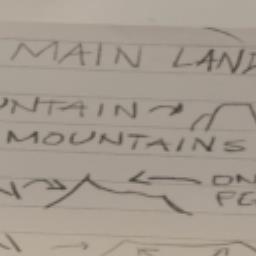 MAIN LAND
UNTAIN
MOUNTAINS
ON